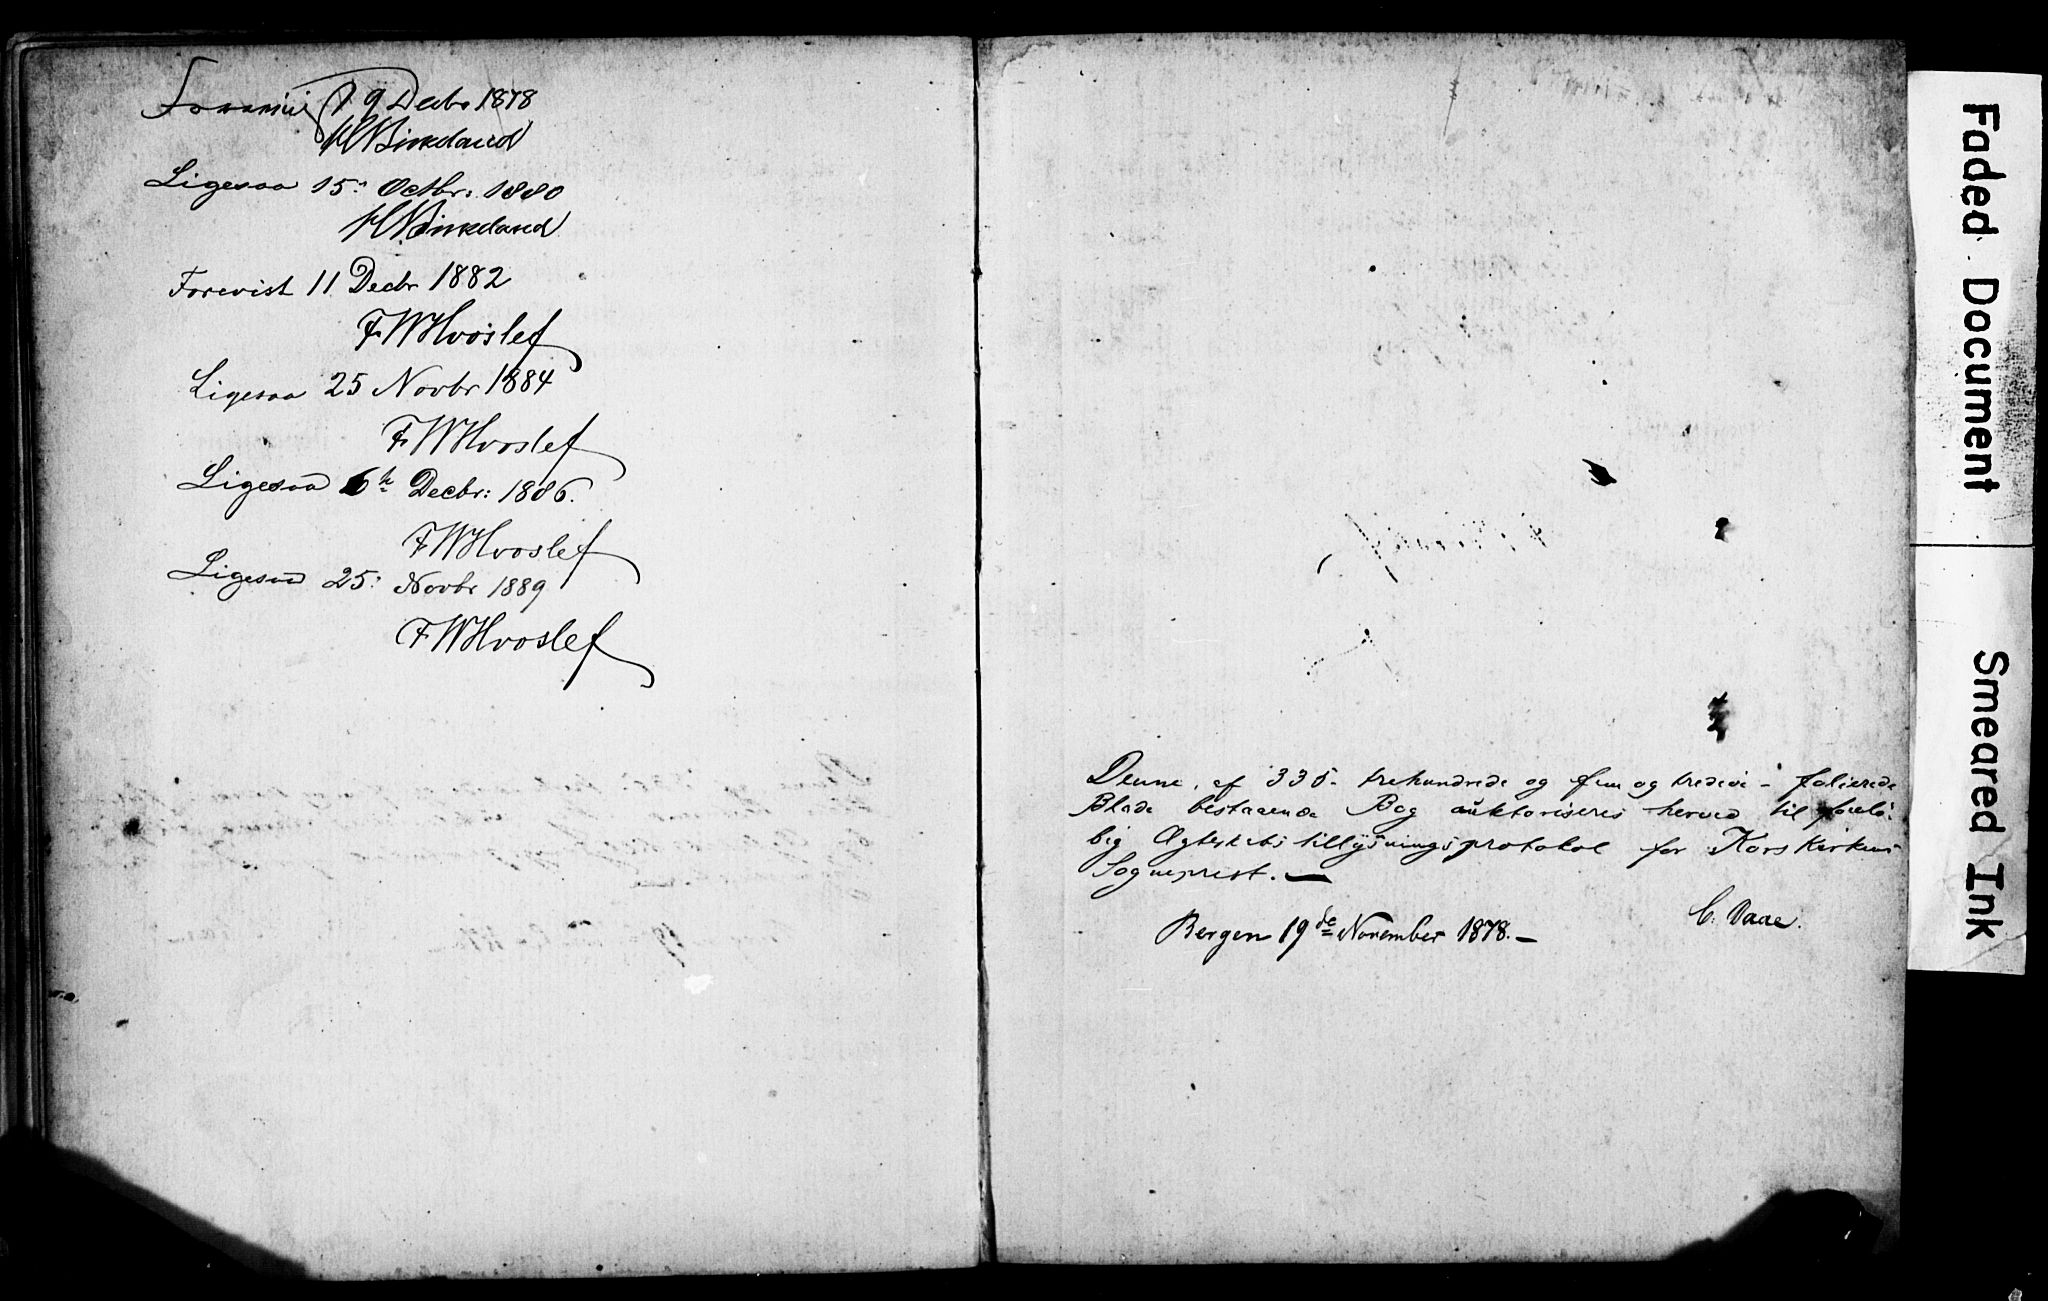 Forevist d 9 Decbr 1878
HNBirkeland
Ligesaa 15: Octbr: 1880
HNBirkeland
Forevist 11 Decbr 1882
FWHvoslef
Ligesaa 25 Novbr 1884
FWHvoslef
Ligesaa 6te Decbr: 1886.
FWHvoslef
Ligesaa 25: Novbr 1889
FWHvoslef
Denne, af 335 - trehundrede og fem og tredive - folierede
Blade bestaaende Bog auktoriseres herved til forelö-
big Ægteskabstillysningsprotokol for Korskirkens
Sogneprest. —
C. Daae.
Bergen 19de November 1878. —
Faded Document
Smeared Ink